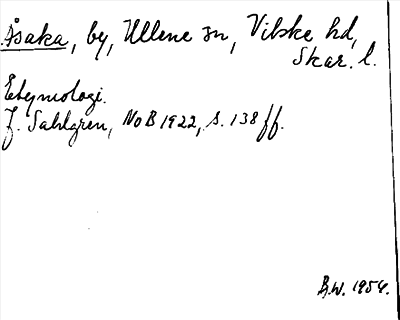 Åsaka, by, Ullene sn, Vilske hd,
Skar. l.
Etymologi.
J. Sahlgren, NoB 1922, s. 138 ff.
B.W. 1954.